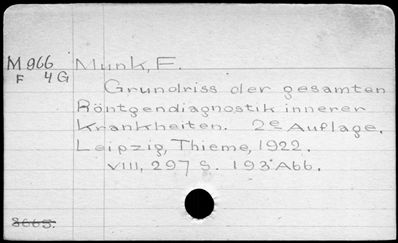 M966 Munk, F.
F 4G
Grundriss der gesamten
Röntgendiagnostik innerer
Krankheiten. 2e Auflage.
Leipzig, Thieme, 1922.
VIII, 297 S. 193 Abb.
8665.